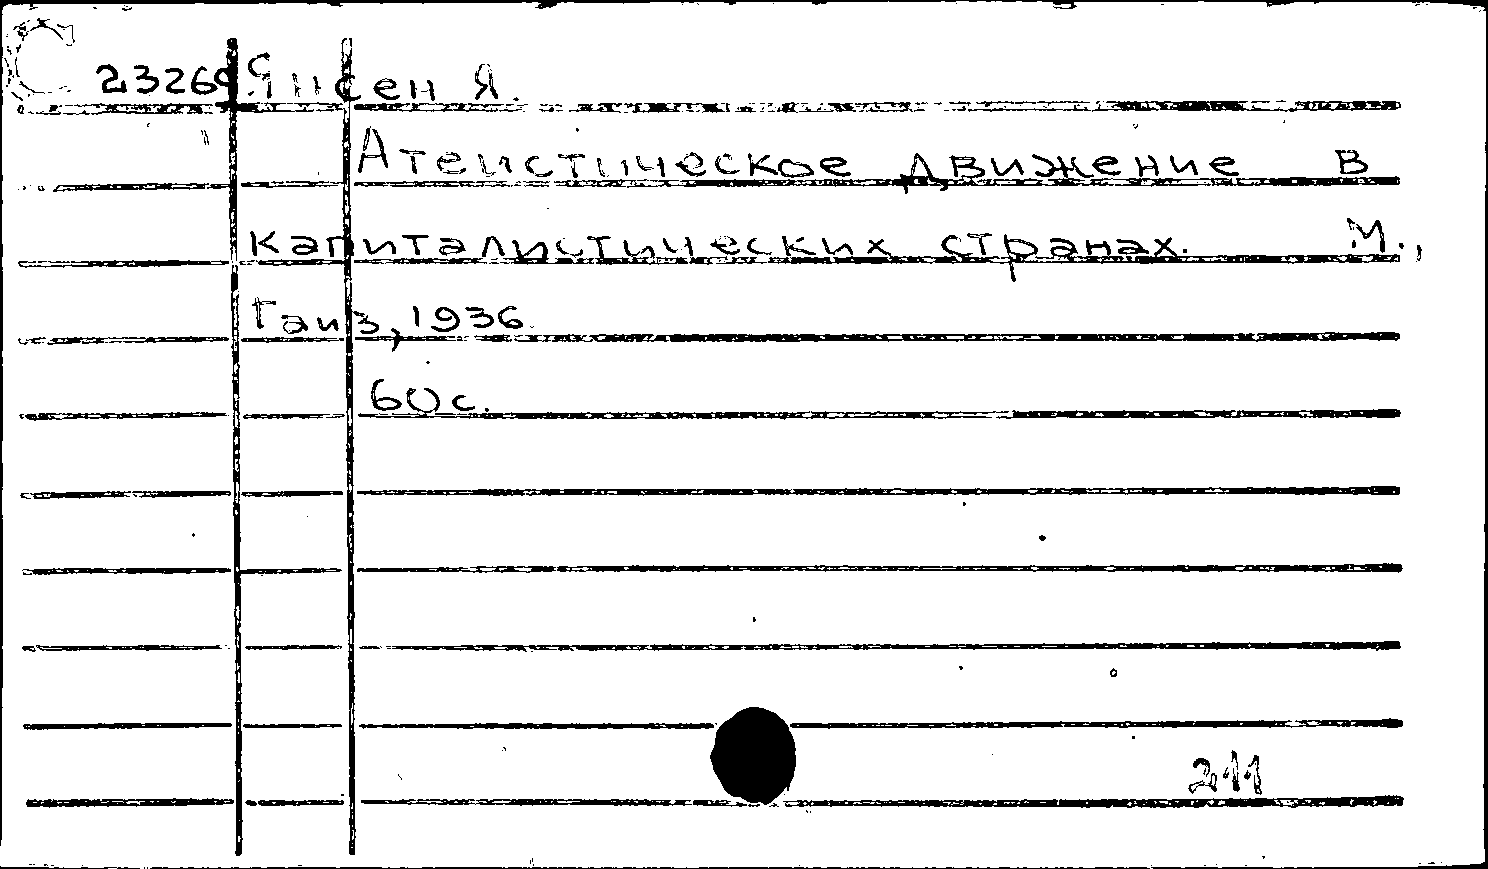 С 23269 Янсен Я.
Атеистическое движение в
капиталистических странах. М.,
Гаиз, 1936.
60 с.
211